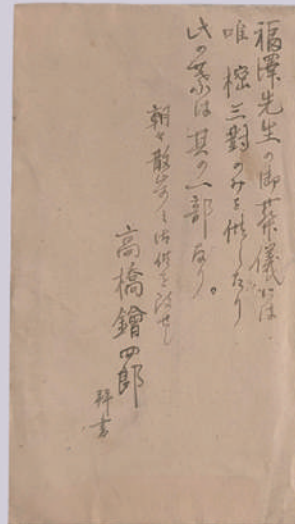 福澤先生の御葬儀には
唯樒三對のみを供したり
此の葉は其の一部なり。
朝々散歩の御供を致せし
高橋鐕四郎
拝書